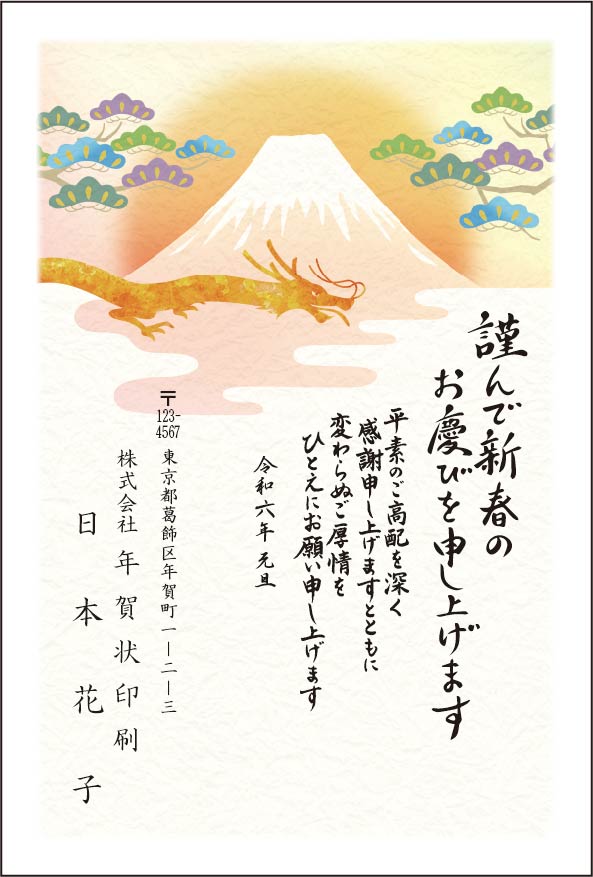 謹んで新春の
お慶びを申し上げます
平素のご高配を深く
感謝申し上げますとともに
変わらぬご厚情を
ひとえにお願い申し上げます
令和六年 元旦
〒123-4567
東京都葛飾区年賀町一―二―三
株式会社 年賀状印刷
日本花子